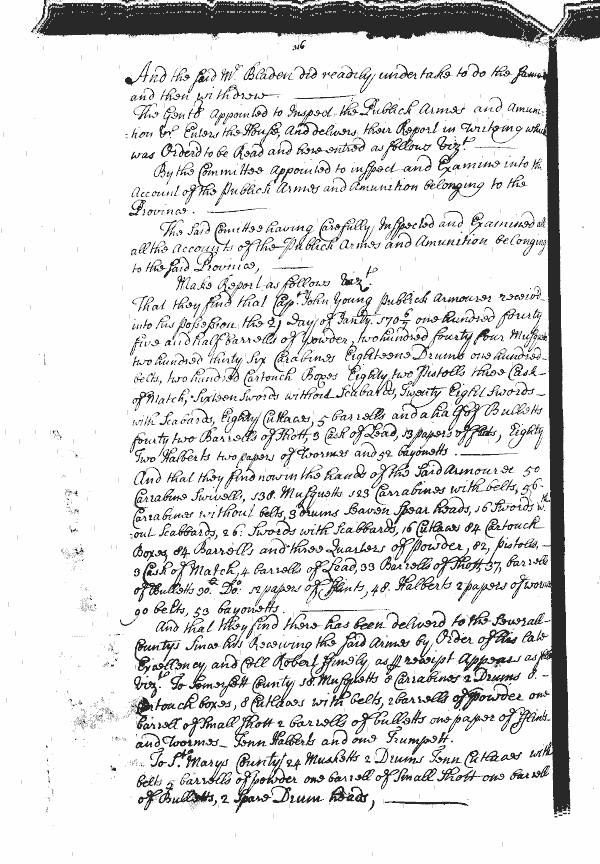 And the said Mr. Bladen did readily undertake to do the same
and then withdrew
The Gents Appointed to Inspect the Publick Armes and Amuni-
tion &c. Enters the House, And delivers their Report in Writeing which
was Orderd to be Read and here entred as follows Vizt.
By the Committee Appointed to inspect and Examine into the
Account of the Publick Armes and Amunition belonging to the
Province.
The said Comittee having Carefully Inspected and Examined
all the Accounts of the Publick Armes and Amunition belonging
to the said Province,
Make Report as follows Vizt.
That they find that Capt. John Young Publick Armourer received
into his Possession the 21 Day of Janry. one hundred fourty
five and half barrells of Powder, two hundred fourty four Musqts
two hundred thirty Six Carabines Eighteene Drums one hundred
belts, two hundred Cartouch Boxes Eighty two Pistolls three Cask
of Match, Sixteen Swords without Scabards, Twenty Eight Swords
with Scabards, Eighty Cutlaces, 5 barrells and a half of Bulletts
fourty two Barrells of Shott, 3 Cask of Lead, 13 papers of flints, Eighty
Two Halberts two papers of Wormes and 52 bayonetts
And that they find now in the hands of the Said Armourer 50
Carrabine Swivells, 138. Musquetts 123 Carrabines with belts, 56
Carrabines without belts, 3 drums Seaven Spear heads, 16 Swords wth.
out Scabbards, 26: Swords with Scabbards, 16 Cutlaces 84 Cartouch
Boxes, 84 Barrells and three Quarters of Powder, 82, Pistolls,
3 Cask of Match, 4 barrells of Lead, 33 Barrells of Shott 37, barrells
of Bulletts Do. 12 papers of flints, 48. Halberts 2 papers of worms
90 belts, 53 bayonetts.
And that they find there has been deliverd to the Severall
Countys Since his Receiving the said Armes by Order of His late
Excellency, and Coll Robert Smith, as receipt Appears as
Vizt. To Somersett County 18. Musquetts 8 Carrabines 2 Drums 8.
Cartouch boxes, 8 Cutlaces with belts, 2 barrells of Powder one
barrell of Small Shott 2 barrells of bulletts one paper of flints
and Wormes Tenn Halberts and one Trumpett.
To St. Marys County 24 Musketts 2 Drums Tenn Cutlaces with
belts 5 barrells of powder one barrell of Small Shott one barrell
of Bulletts, 2 Spare Drum heads,